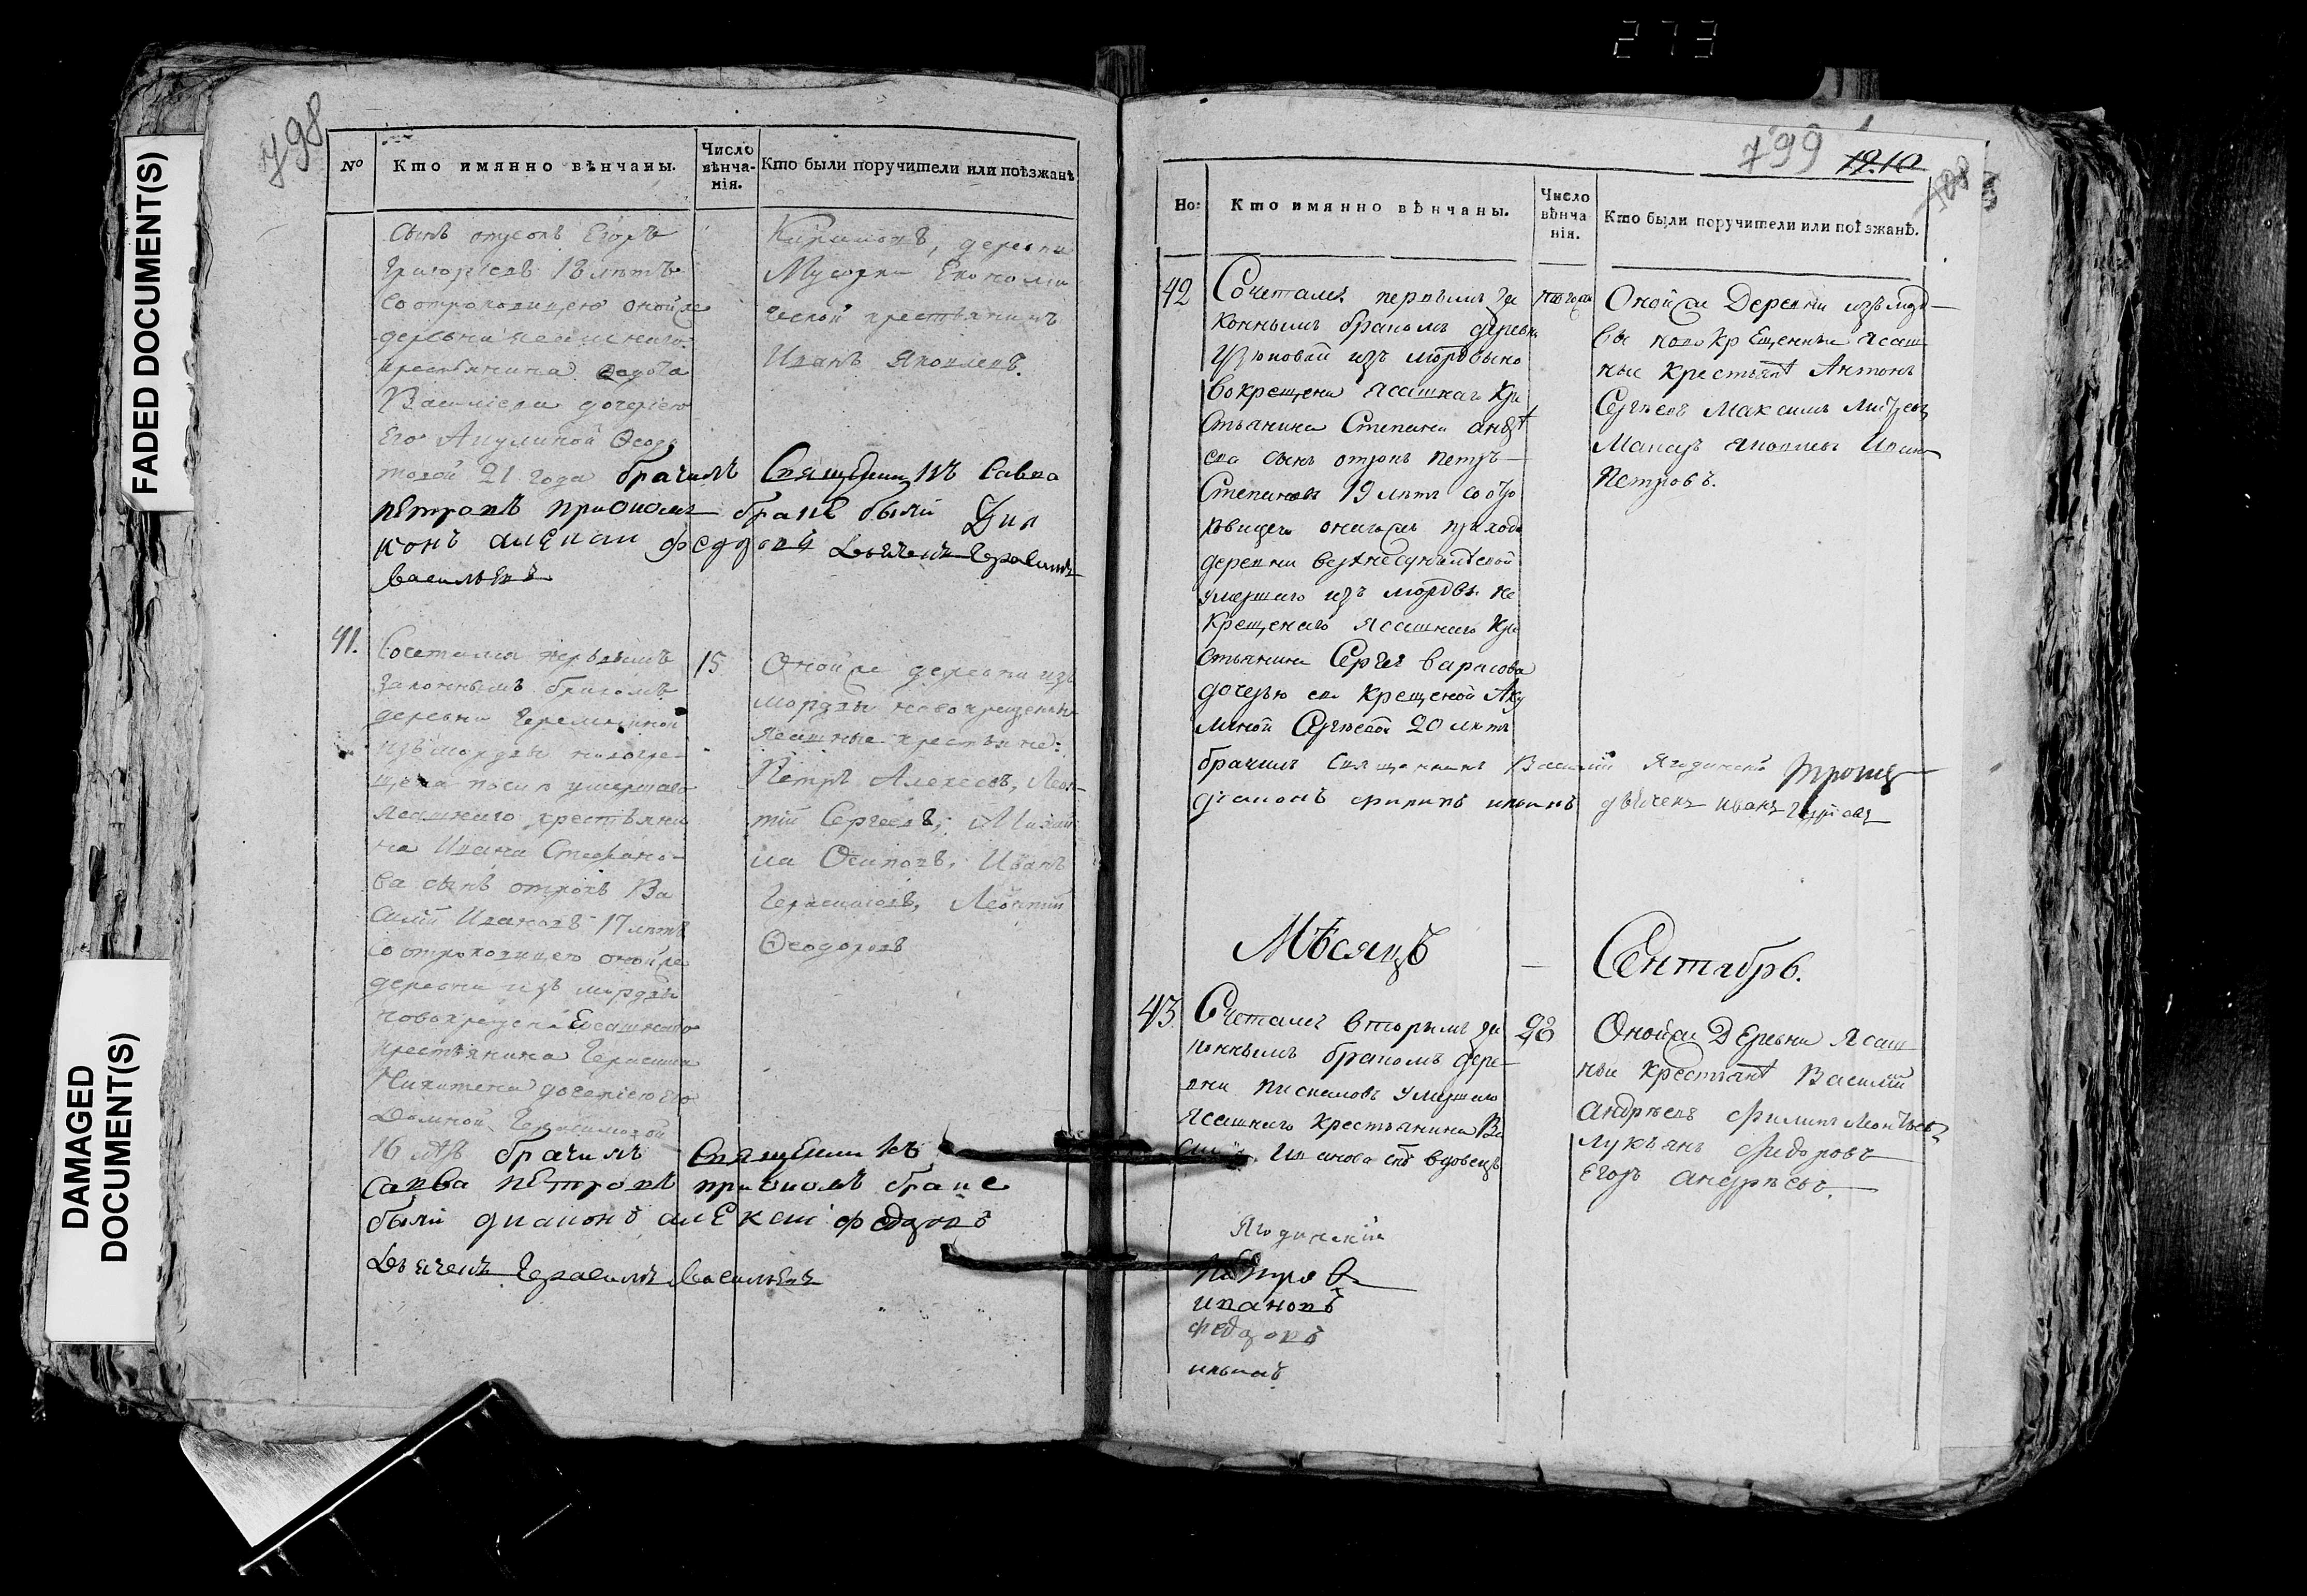 273
FADED DOCUMENT(S)
DAMAGED
DOCUMENT(S)
798
№
Кто имянно вѣнчаны.
Число
вѣнча-
нія.
Кто были поручители или поѣзжанѣ
сынъ отрокъ Егоръ
Григорьевъ 18 лѣтъ
со отроковицею оной же
деревни
крестьянина
Васильева дочерью
его Акулиной
21 года брачилъ Священникъ Савва
Петровъ при ономъ бракѣ были Дия
конъ алекѣи федоровъ дьячекъ Герасимъ
васильевъ
деревни
Мусорки Економи
ческой крестьянинъ
Иванъ Яковлевъ.
41.
Сочетался первымъ
законнымъ бракомъ
деревни
изъ мордвы новокре
щена умершаго
ясашнаго крестьяни
на Ивана Стефано-
ва сынъ отрокъ Ва
силій Ивановъ 17 лѣтъ
со отроковицею оной же
деревни изъ мордвы
новокрещена Есашнаго
крестьянина Герасима
Никитина дочерию его
Домной Герасимовой
16 лѣтъ брачилъ Священникъ
савва петровъ при ономъ браке
были диаконъ алекѣи федоровъ
дьячекъ Герасимъ васильевъ
15
Оной же деревни изъ
мордвы новокрещены
ясашные крестьяне:
Петръ Алексеевъ, Леон-
тій Сергеевъ, Михай
ла Осиповъ, Иванъ
Герасимовъ, Леонтій
Ѳеодоровъ
799
12.10
Но:
Кто имянно вѣнчаны.
Число
вѣнча
нія.
Кто были поручители или поѣзжанѣ.
42
Сочетался первымъ за
коннымъ бракомъ деревни
Узюковой изъ мордвы но
вокрещена ясашнаго кре
стьянина Степана андре
ева сынъ отрокъ петръ
Степановъ 19 лѣтъ со отро
ковицею онаго же прихода
деревни
умершаго изъ мордвы не
крещенаго ясашнаго кре
стьянина Сергея варисова
дочерью ея крещеной Аку
линой Сергѣевой 20 лѣтъ
брачилъ священникъ Василій Ягодинскій
діаконъ филипъ ильинъ дьячекъ иванъ
того же
Оной же Деревни изъ мор
вы новокрещенные ясаш
ные крестьянѣ Антонъ
Сергѣевъ Максимъ
Макаръ яковлевъ Иванъ
Петровъ.
Мѣсяцъ — Сентябрь.
43
Счетался вторымъ за
коннымъ бракомъ дере-
вни пискаловъ умершаго
ясашнаго крестьянина Ва
силія Иванова сынъ вдовецъ
28
Оной же Деревни ясаш
ныи крестьянѣ Василій
андрѣевъ филипъ Леонтьевъ
лукьянъ фидоровъ
егоръ андрѣевъ.
Ягодинскій
петровъ
ивановъ
федоровъ
ильинъ